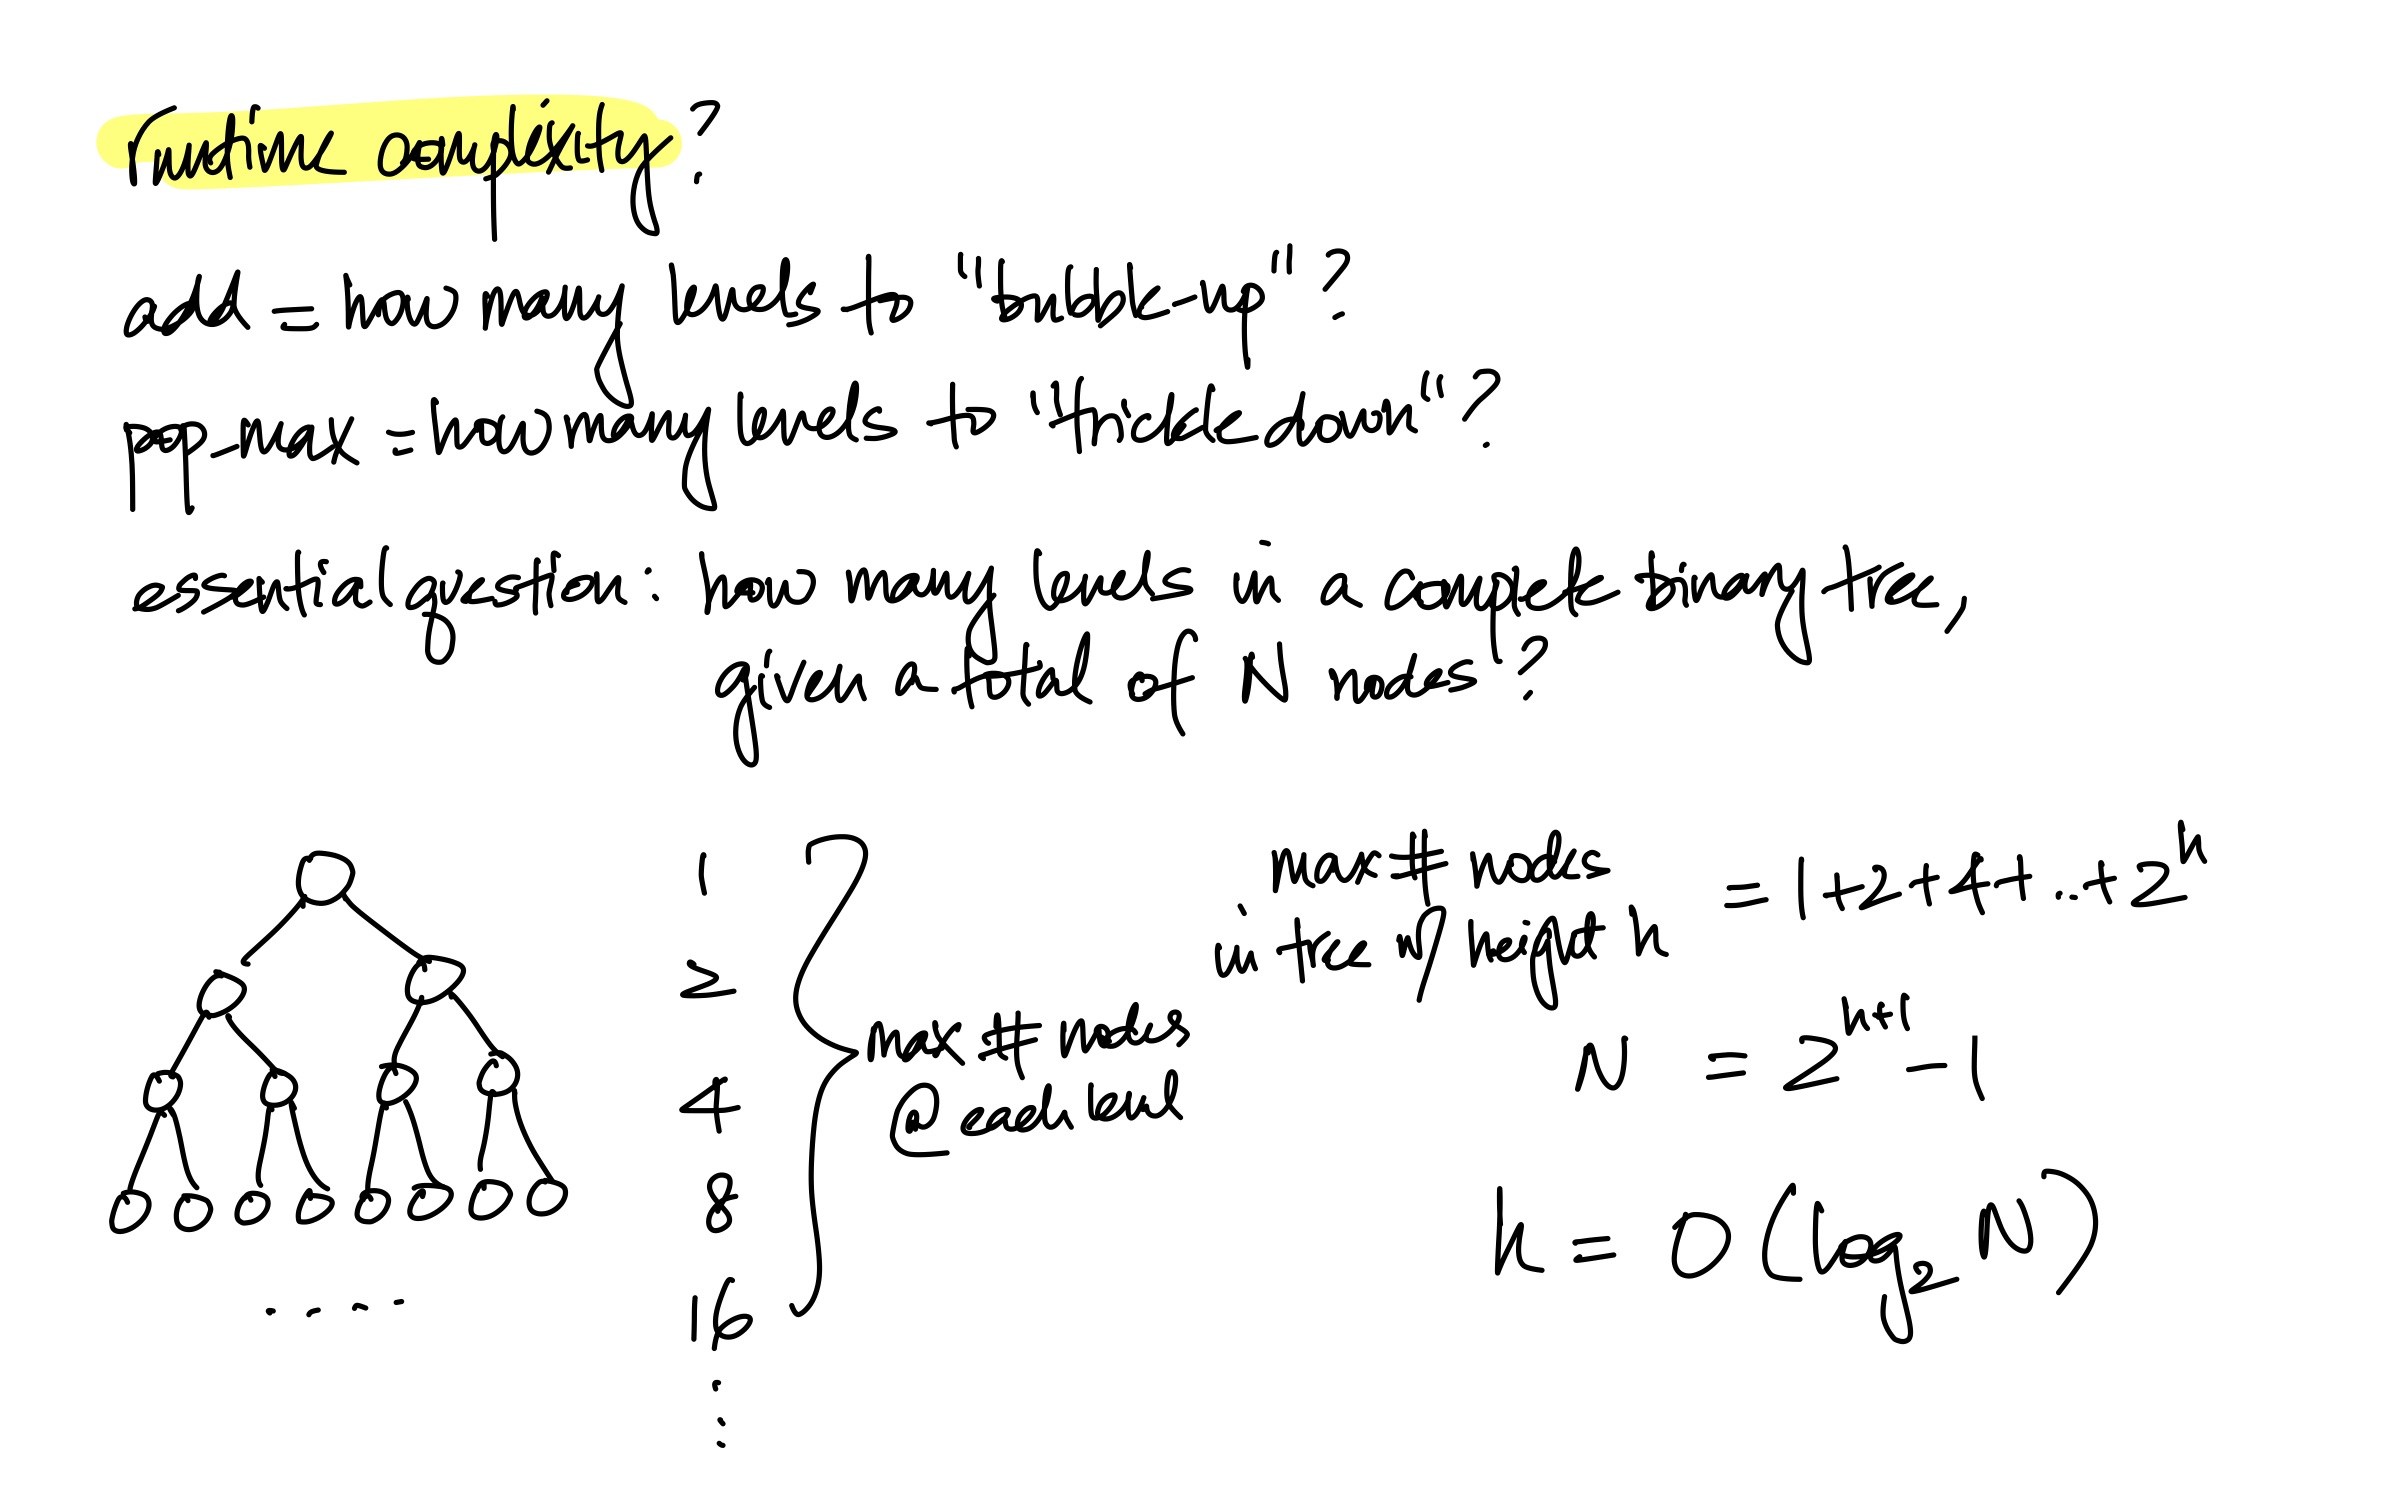 runtime complexity?
add = how many levels to "bubble-up"?
pop-max = how many levels to "trickle down"?
essential question: how many levels in a complete binary tree,
given a total of N nodes?
1
2
4
8
16
max # nodes
@ each level
max # nodes
in tree w/ height h
= 1+2+4+...+2^h
N = 2^{h+1} - 1
h = O(log_2 N)